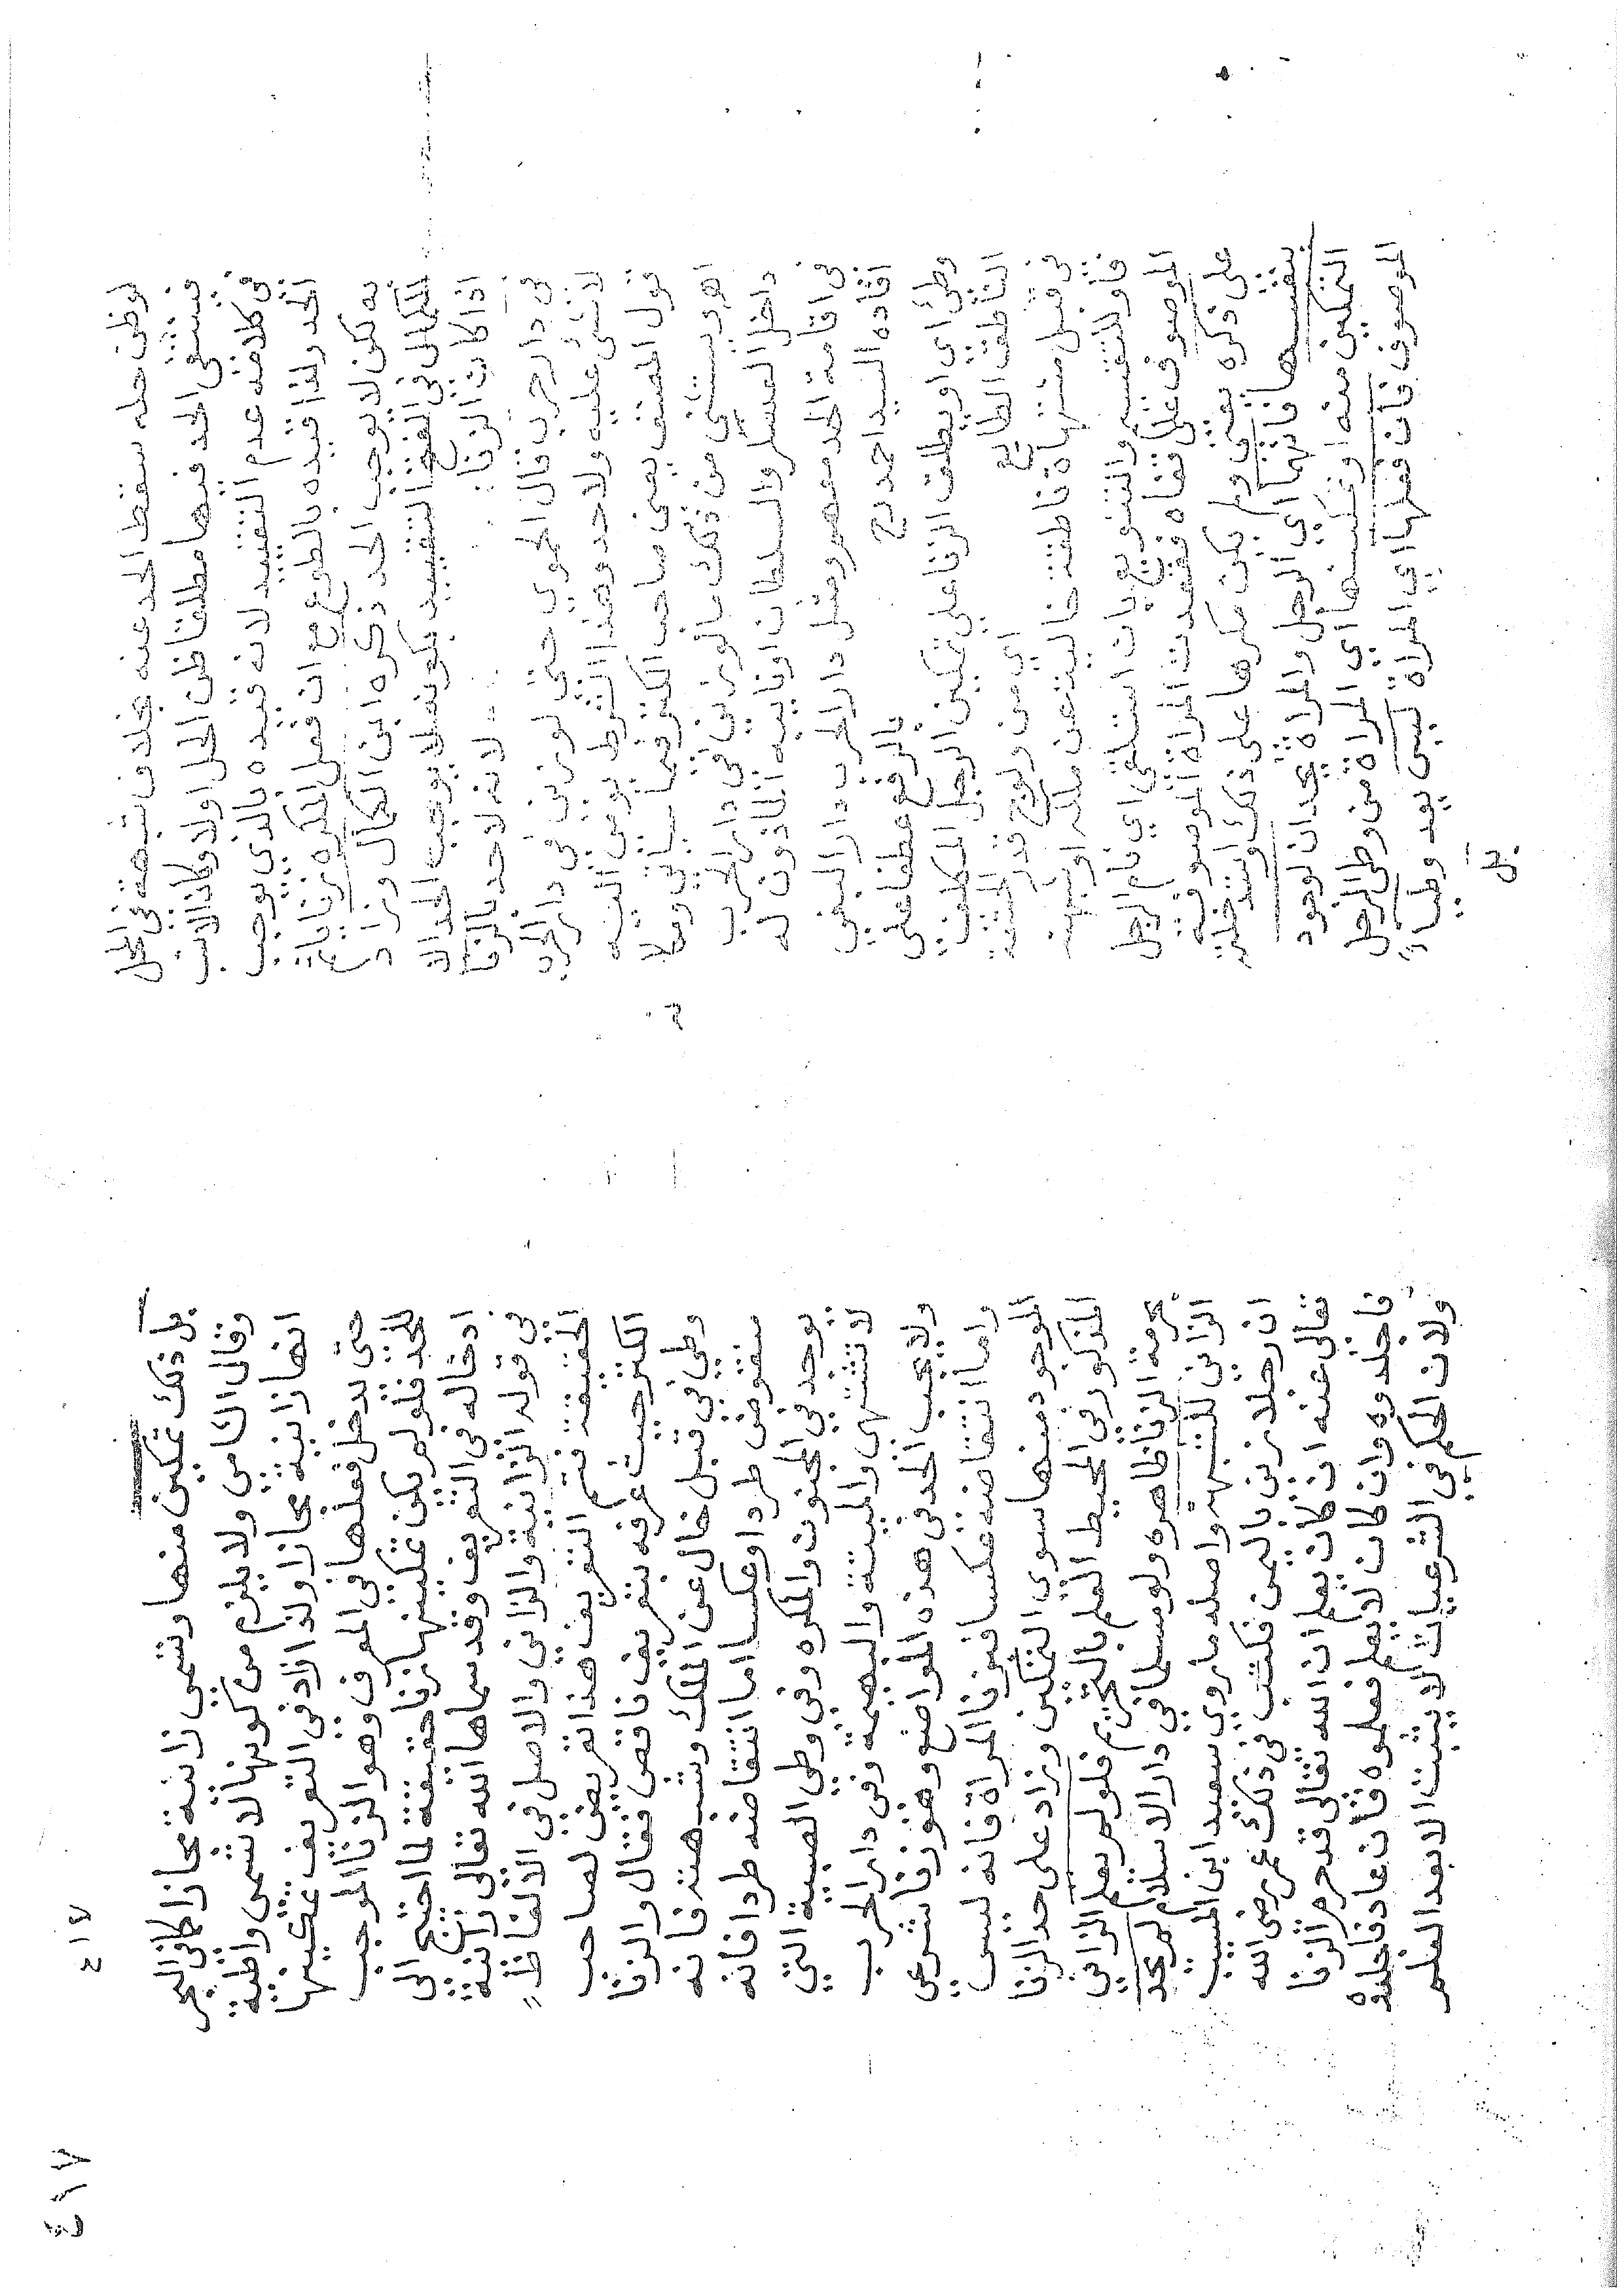 لوظن حله سقط الحد عنه بخلاف شبهة في المحل
فينتفي الحد فيها مطلقا ظن الحل اولا وكان الانسب
في كلامه عدم التقييد لانه قيده بالذي يوجب
الحد ولذا قيده بالطوع مع ان فعل المكره زنا
به لكن لا يوجب الحد ذكره ابن الكمال وزاد
الكمال في الفتح التقييد بكونه لا يوجب الحد الا
اذا كان الزنا لانه لا حد بالزنا
في دار حرب قال الحموي حتى لو زنى في دار الحرب
لا شئ عليه ولا حد وهذا الشرط يومئ اليه
قول المصنف يعني صاحب الكنز فيما سياتي ولا
اهـ ويستثنى من ذلك ما لو زنى في دار الحرب
داخل العسكر والسلطان او نايبه الماذون له
في اقامة الحد معهم ومثل دار الحرب دار البغي
افاده السيد احمد رح بالرفع عطفا على
وطئ اي او يطلق الزنا على تمكين الرجل المكلف
الناطق الطايع اي من ولوج قدر الحشفة
في قبل مشتهاة ناطقة خاليتين عن ملكه
فاو للتقسيم والتنويع بان استلقى اي نام الرجل
الموصوف على قفاه فقعدت المراة الموصوفة
على ذكره يعني ولم يكن مكرها على ذلك
بنفسها فانهما اي الرجل والمراة يحدان لوجود
التمكين منه او تمكينها اي المراة من وطئ الرجل
الموصوف فان فعلها اي المراة ليس يعد وطئا
بل
٤١٧
بل ذلك تمكين منها وتسمى زانية مجازا كما في البحر
وقال الشامي ولا يلزم من كونها لا تسمى واطئة
انها زانية مجازا ولذا زاد في التعريف تمكينها
حتى يدخل فعلها في المعرف وهو الزنا الموجب
للحد فلو لم يكن تمكينها زنا حقيقة لما احتيج الى
ادخاله في التعريف وقد سماها الله تعالى زانية
في قوله الزانية والزاني والاصل في الالفاظ
الحقيقة ثم التعريف هذا تعريض لصاحب
الكنز حيث عرفه بتعريف ناقص فقال والزنا
وطئ في قبل خال عن الملك وشبهته فانه
منقوض طردا وعكسا اما انتقاضه طردا فانه
يوجد في المجنون والمكره وفي وطئ الصبية التي
لا تشتهى والميتة والبهيمة وفي دار الحرب
ولا يجب الحد في هذه المواضع وهو زنا شرعي
واما انتقاضه عكسا فبزنا المراة فانه ليس
الموجود منها سوى التمكين وزاد على حد الزنا
المذكور في المحيط العلم بالتحريم فلو لم يعلم الزاني
بحرمة الزنا ظاهره ولو مسلما في دار الاسلام لم يحد
الزاني للشبهة واصله ما روي سعيد ابن المسيب
ان رجلا زنى باليمن فكتب في ذلك عمر رضي الله
تعالى عنه ان كان يعلم ان الله تعالى قد حرم الزنا
فاجلدوه وان كان لا يعلم فعلموه فان عاد فاجلدوه
ولان الحكم في الشرعيات لا يثبت الا بعد العلم
٤١٧